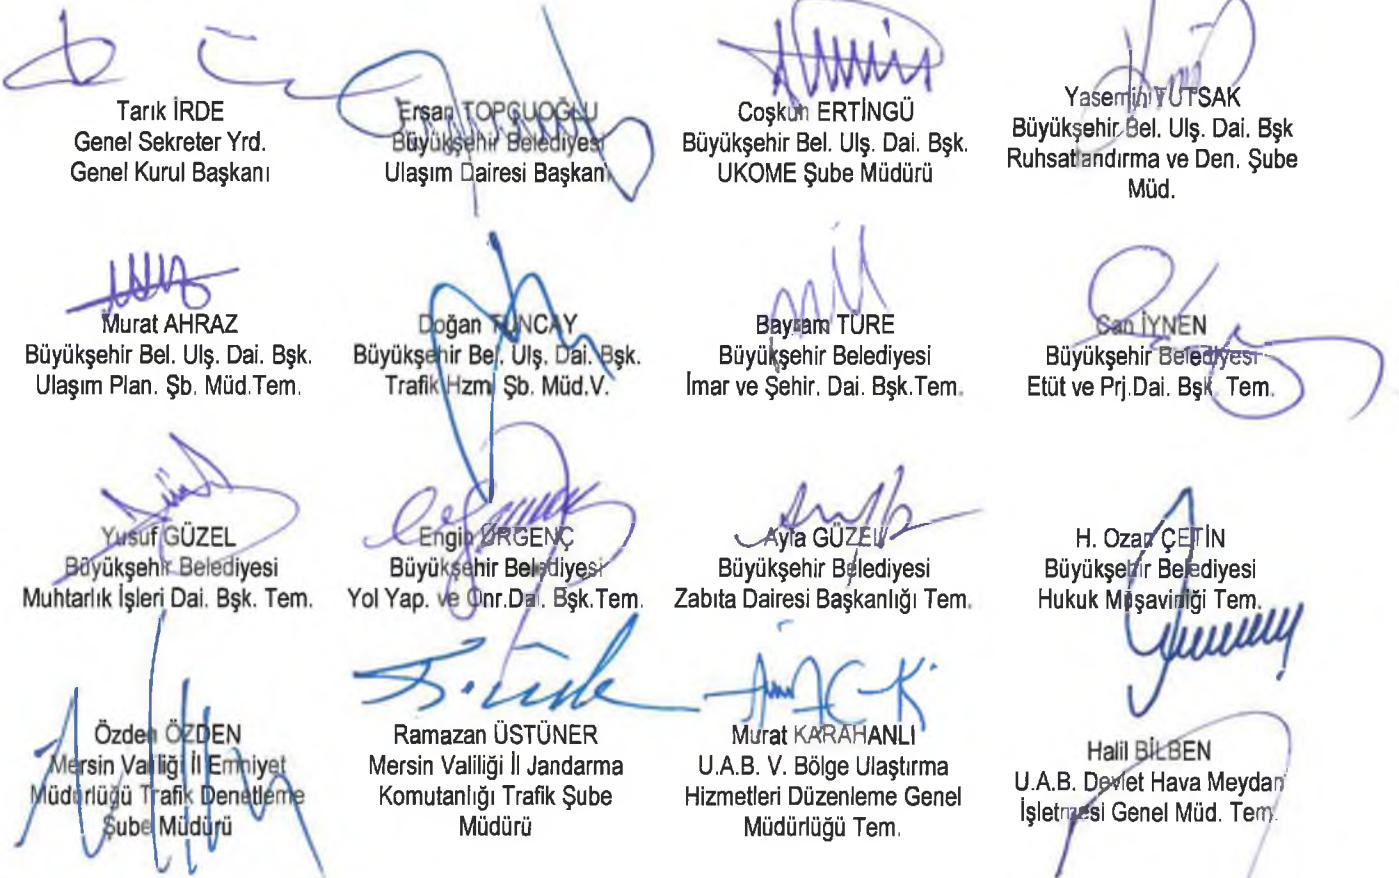 Tarık İRDE
Genel Sekreter Yrd.
Genel Kurul Başkanı
Ersan TOPÇUOĞLU
Büyükşehir Belediyesi
Ulaşım Dairesi Başkanı
Coşkun ERTİNGÜ
Büyükşehir Bel. Ulş. Dai. Bşk.
UKOME Şube Müdürü
Yasemin TUTSAK
Büyükşehir Bel. Ulş. Dai. Bşk
Ruhsatlandırma ve Den. Şube
Müd.
Murat AHRAZ
Büyükşehir Bel. Ulş. Dai. Bşk.
Ulaşım Plan. Şb. Müd.Tem.
Doğan TUNCAY
Büyükşehir Bel. Ulş. Dai. Bşk.
Trafik Hzm. Şb. Müd.V.
Bayram TÜRE
Büyükşehir Belediyesi
İmar ve Şehir. Dai. Bşk.Tem.
Can İYNEN
Büyükşehir Belediyesi
Etüt ve Prj.Dai. Bşk. Tem.
Yusuf GÜZEL
Büyükşehir Belediyesi
Muhtarlık İşleri Dai. Bşk. Tem.
Engin ÜRGENÇ
Büyükşehir Belediyesi
Yol Yap. ve Onr.Dai. Bşk.Tem.
Ayla GÜZEL
Büyükşehir Belediyesi
Zabıta Dairesi Başkanlığı Tem.
H. Ozan ÇETİN
Büyükşehir Belediyesi
Hukuk Müşavirliği Tem.
Özden ÖZDEN
Mersin Valiliği İl Emniyet
Müdürlüğü Trafik Denetleme
Şube Müdürü
Ramazan ÜSTÜNER
Mersin Valiliği İl Jandarma
Komutanlığı Trafik Şube
Müdürü
Murat KARAHANLI
U.A.B. V. Bölge Ulaştırma
Hizmetleri Düzenleme Genel
Müdürlüğü Tem.
Halil BİLBEN
U.A.B. Devlet Hava Meydan
İşletmesi Genel Müd. Tem.